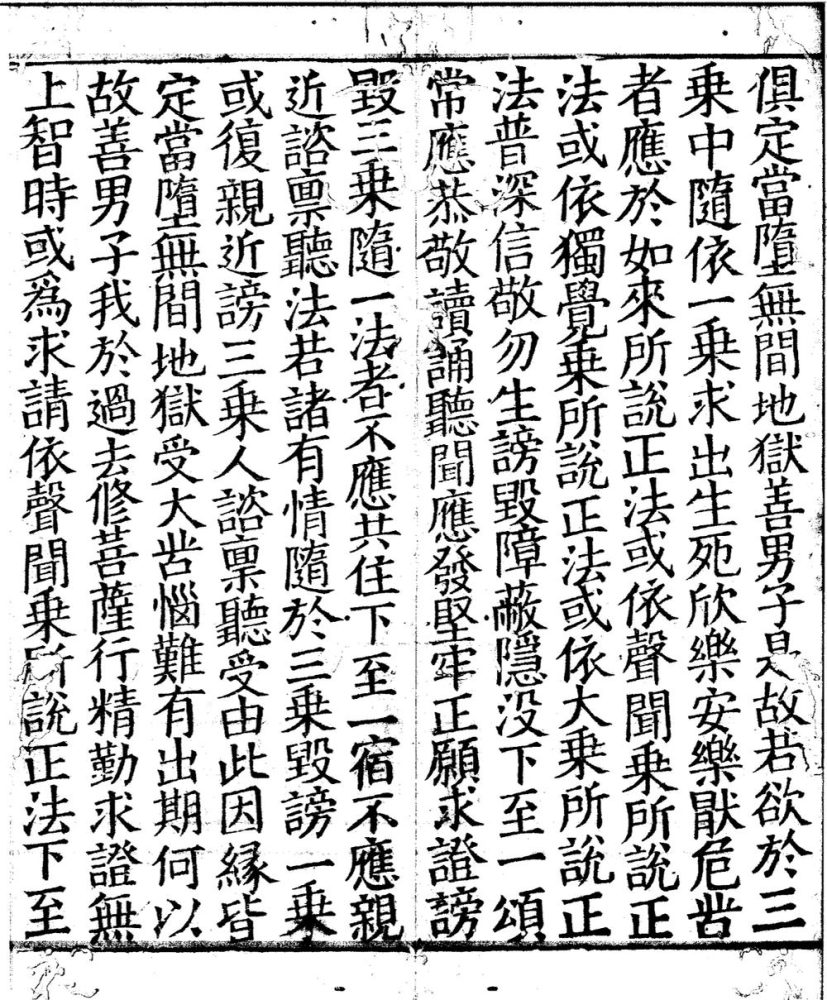 俱定當墮無間地獄善男子是故若欲於三
乗中隨依一乗求出生死欣樂安樂厭危苦
者應於如來所説正法或依聲聞乗所説正
法或依獨覺乗所説正法或依大乗所説正
法普深信敬勿生謗毀障蔽隱没下至一頌
常應恭敬讀誦聽聞應發堅牢正願求證謗
毀三乗隨一法者不應共住下至一宿不應親
近諮禀聽法若諸有情隨於三乗毀謗一乗
或復親近謗三乗人諮禀聽受由此因縁皆
定當墮無間地獄受大苦惱難有出期何以
故善男子我於過去修菩薩行精勤求證無
上智時或爲求請依聲聞乗所説正法下至